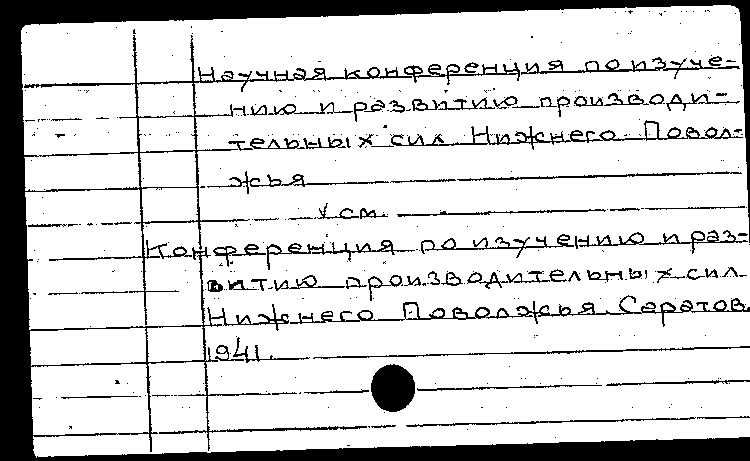 Научная конференция по изуче-
нию и развитию производи-
тельных сил Нижнего Повол-
жья
см.
Конференция по изучению и раз-
витию производительных сил
Нижнего Поволжья. Саратов.
1941.